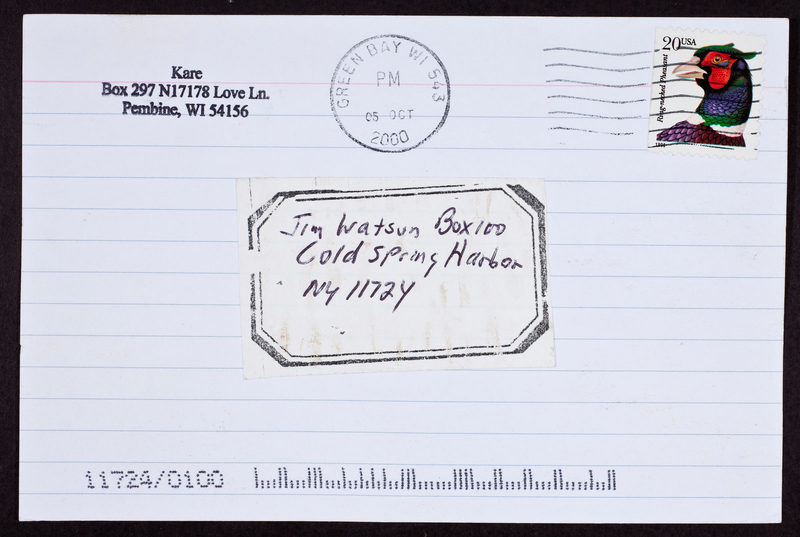 Kare
Box 297 N17178 Love Ln.
Pembine, WI 54156
GREEN BAY WI 543
PM
05 OCT
2000
20USA
Ring-necked Pheasant
Jim Watsun Box100
Cold Spring Harbor
NY 11724
11724/0100